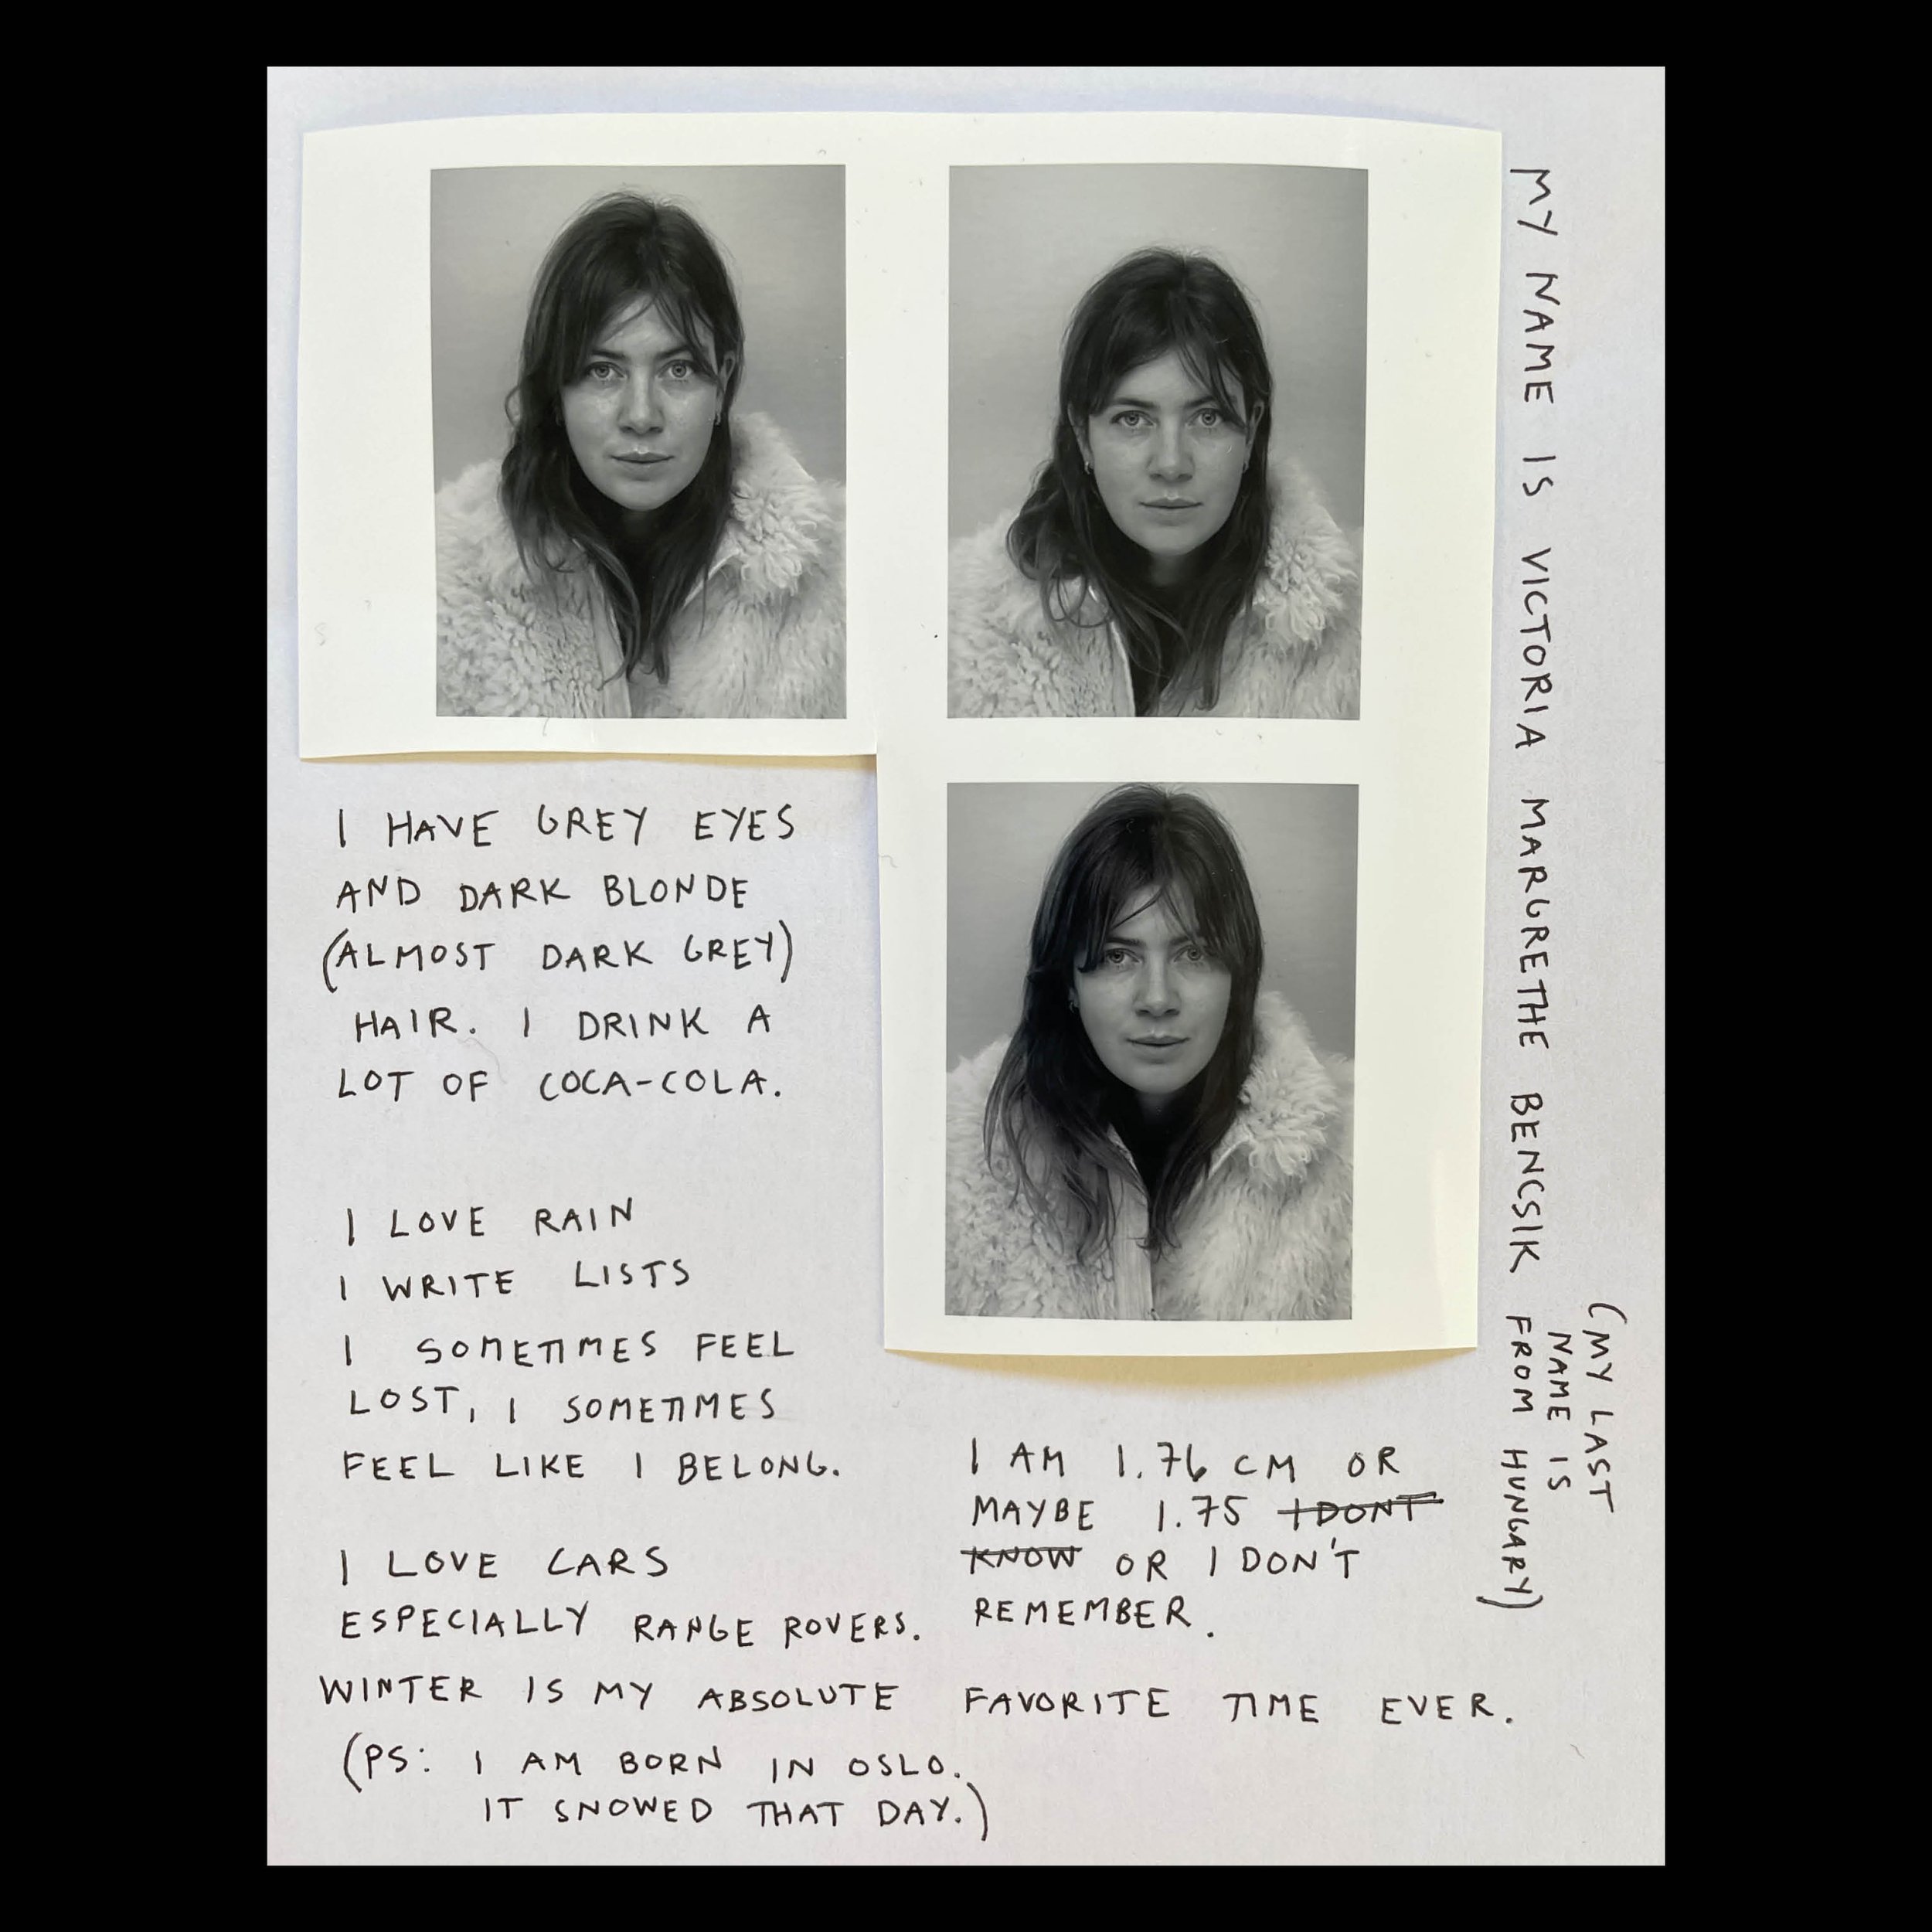 MY NAME IS VICTORIA MARGRETHE BENCSIK
(MY LAST
NAME IS
FROM HUNGARY)
I HAVE GREY EYES
AND DARK BLONDE
(ALMOST DARK GREY)
HAIR. I DRINK A
LOT OF COCA-COLA.
I LOVE RAIN
I WRITE LISTS
I SOMETIMES FEEL
LOST, I SOMETIMES
FEEL LIKE I BELONG.
I LOVE CARS
ESPECIALLY RANGE ROVERS.
I AM 1.76 CM OR
MAYBE 1.75 I DONT
KNOW OR I DON'T
REMEMBER.
WINTER IS MY ABSOLUTE FAVORITE TIME EVER.
(PS: I AM BORN IN OSLO.
IT SNOWED THAT DAY.)